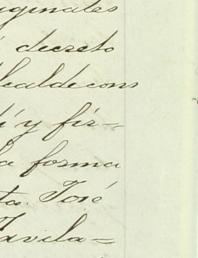 iginales
decreto
lcalde cons
í y fir-
la forma
ta. José
Favila=